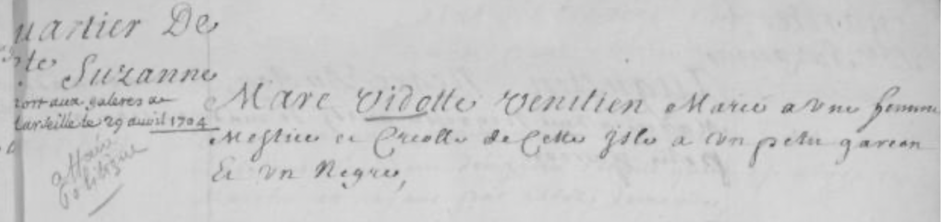 uartier De
ste Suzanne
mort aux galeres a
marseille le 29 avril 1704
affaire
politique
Marc Vidotte Venitien Marie a une femme
Mestice et Creolle de Cette isle a un petit garcon
Et un Negre,